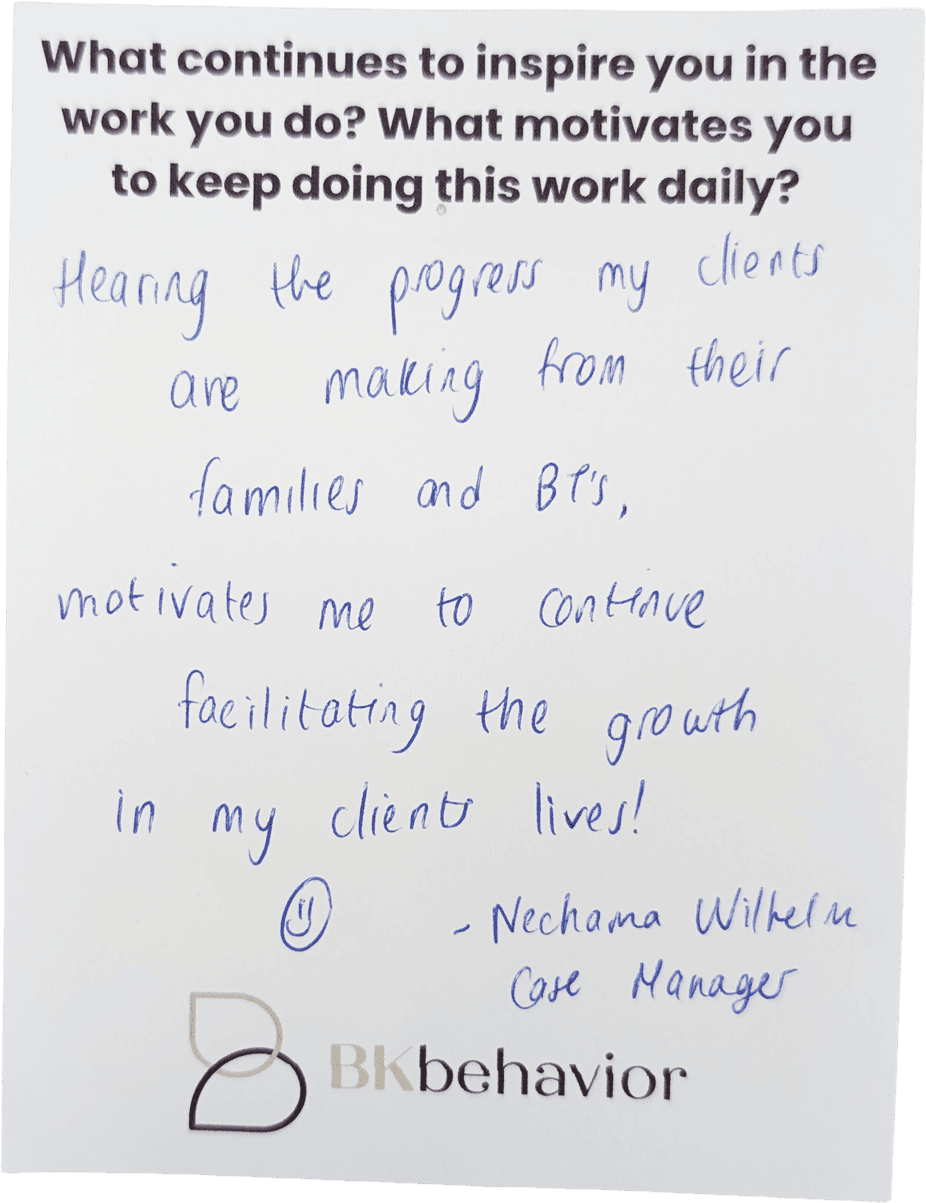 What continues to inspire you in the
work you do? What motivates you
to keep doing this work daily?
Hearing the progress my clients
are making from their
families and BT's,
motivates me to continue
facilitating the growth
in my clients lives!
- Nechama Wilhelm
Case Manager
BKbehavior